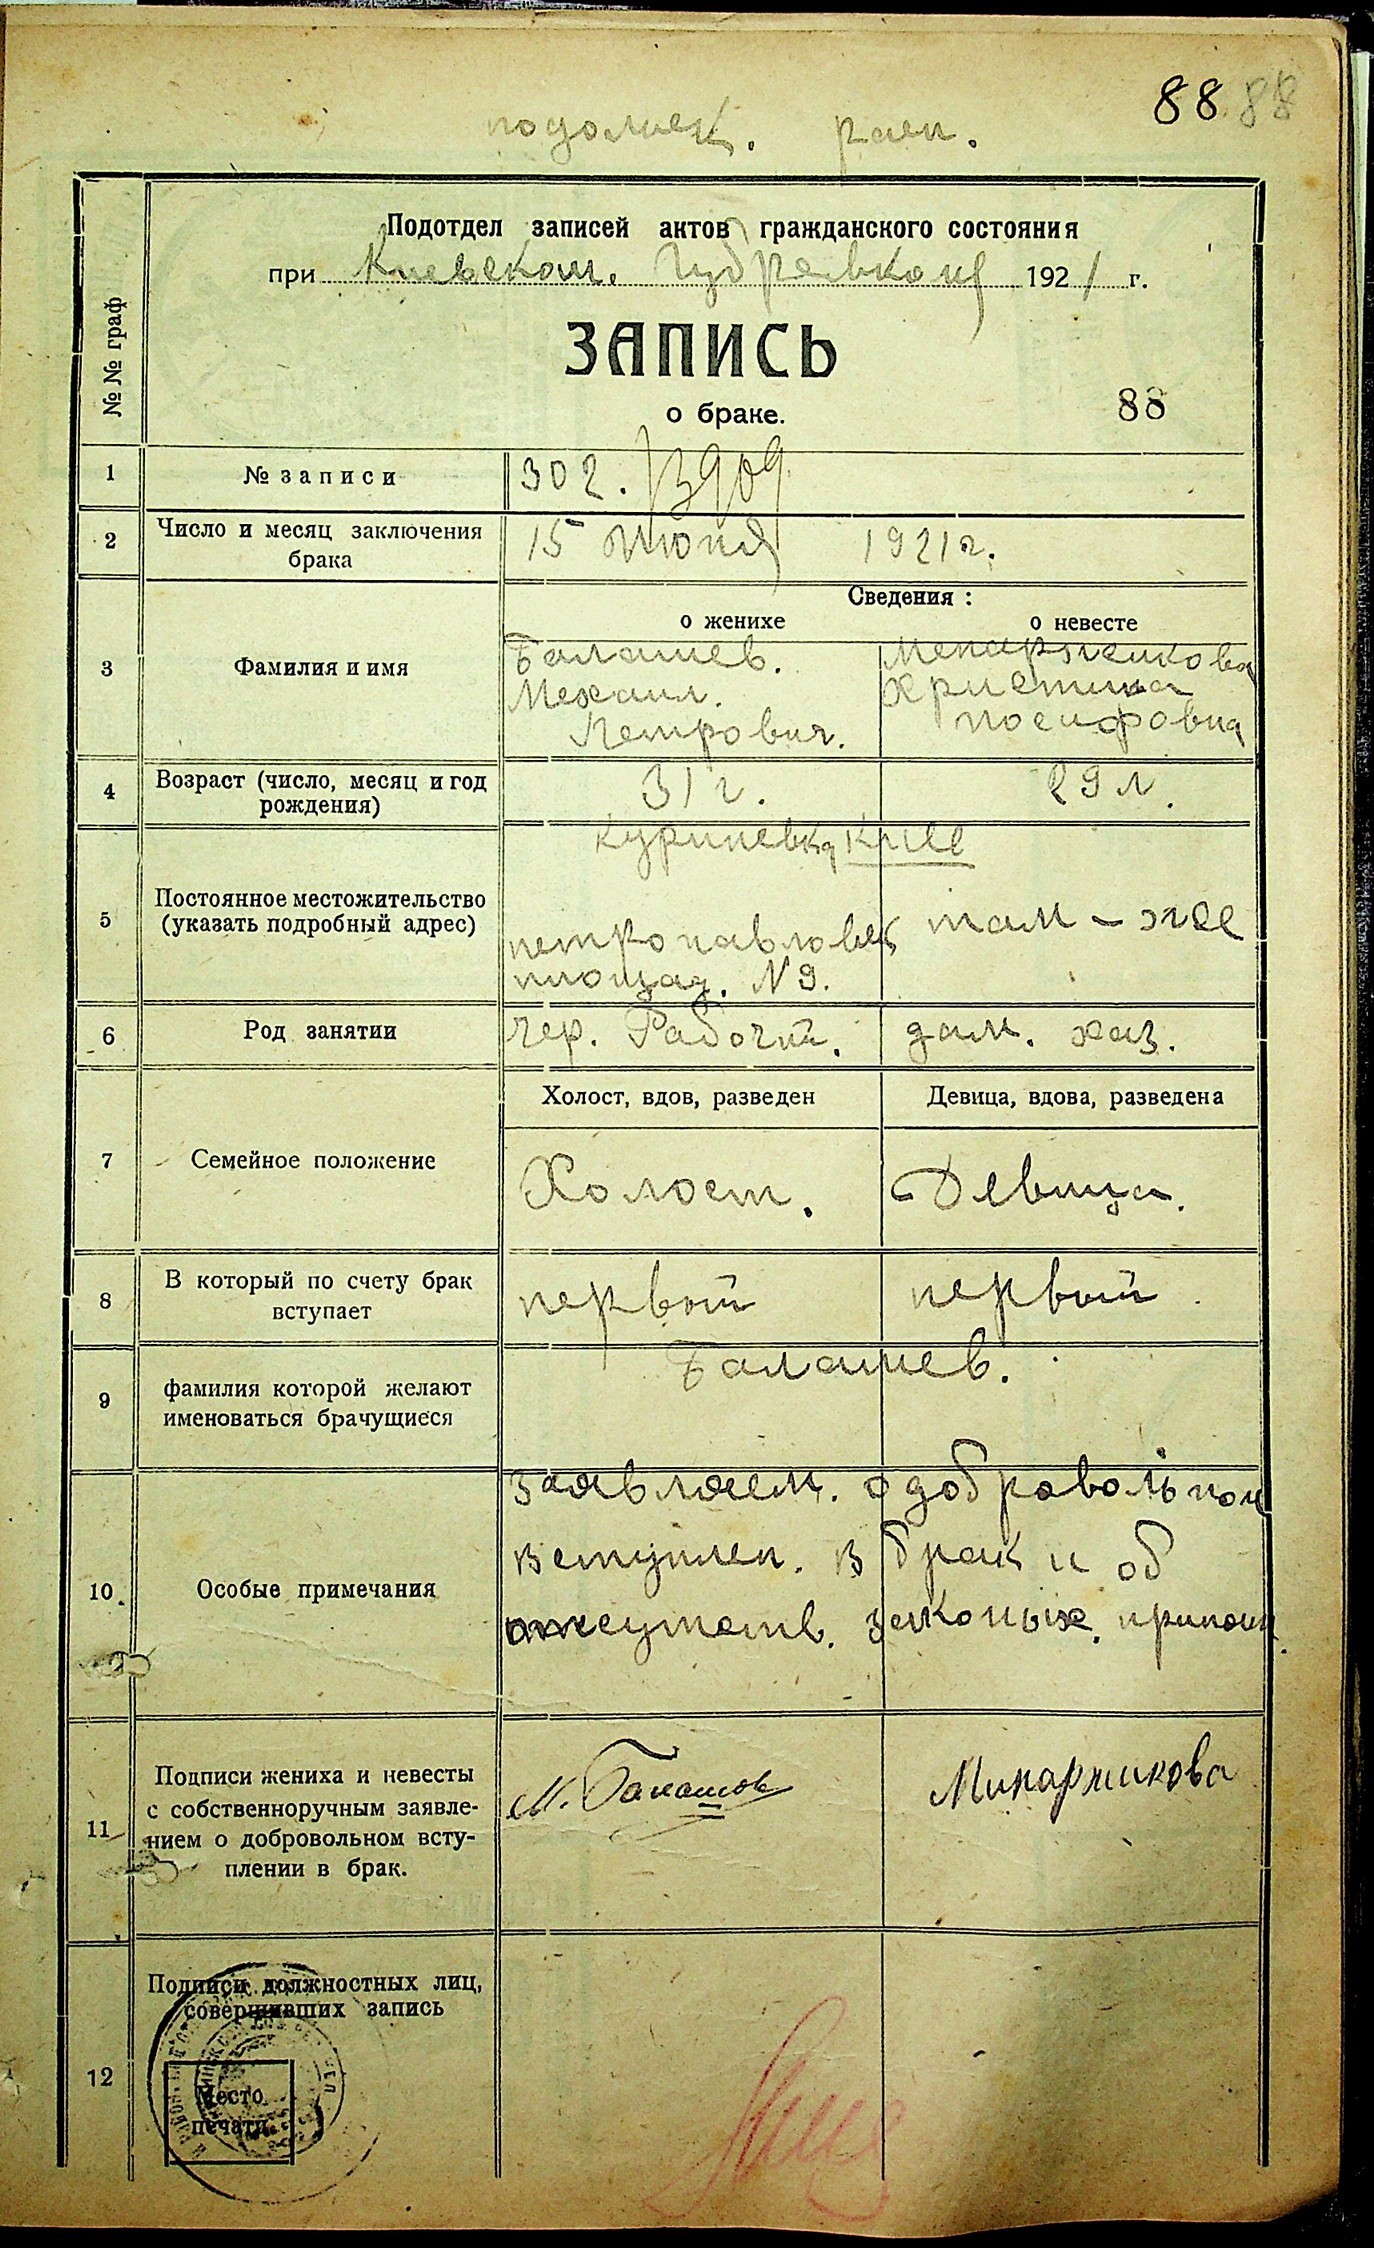 88 88
подольск. раен.
Подотдел записей актов гражданского состояния
при Киевском. Губревкоме 1921 г.
№№ граф
ЗАПИСЬ
о браке.
88
1 № записи 302. /3909
2 Число и месяц заключения
брака
15 июня 1921 г.
Сведения :
о женихе о невесте
3 Фамилия и имя
Балашев.
Механл.
Петрович.
Менаржликова
Христина
иосифовна
4 Возраст (число, месяц и год
рождения)
31 г. 29 л.
Куриневка Киев
5 Постоянное местожительство
(указать подробный адрес)
петропавловск
площад. N 9.
там - же
6 Род занятии чер. Рабочий. дом. хаз.
Холост, вдов, разведен Девица, вдова, разведена
7 Семейное положение Холост. Девица.
8 В который по счету брак
вступает
первый первый
9 фамилия которой желают
именоваться брачущиеся
Балашев.
10. Особые примечания
заявляем. о добравольном
вступлен. в брак и об
отсутств. законых.
11 Подписи жениха и невесты
с собственноручным заявле-
нием о добровольном всту-
плении в брак.
М. Балашов Минаржикова
12 Подписи должностных лиц,
совершивших запись
Место
печати.